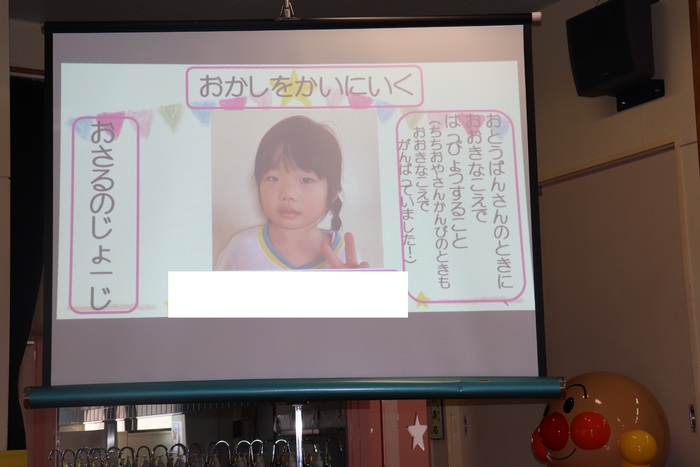 おかしをかいにいく
おとうばんさんのときに、
おおきなこえで
はっぴょうすること
(ちちおやさんかんびのときも
おおきなこえで
がんばっていました!)
おさるのじょーじ